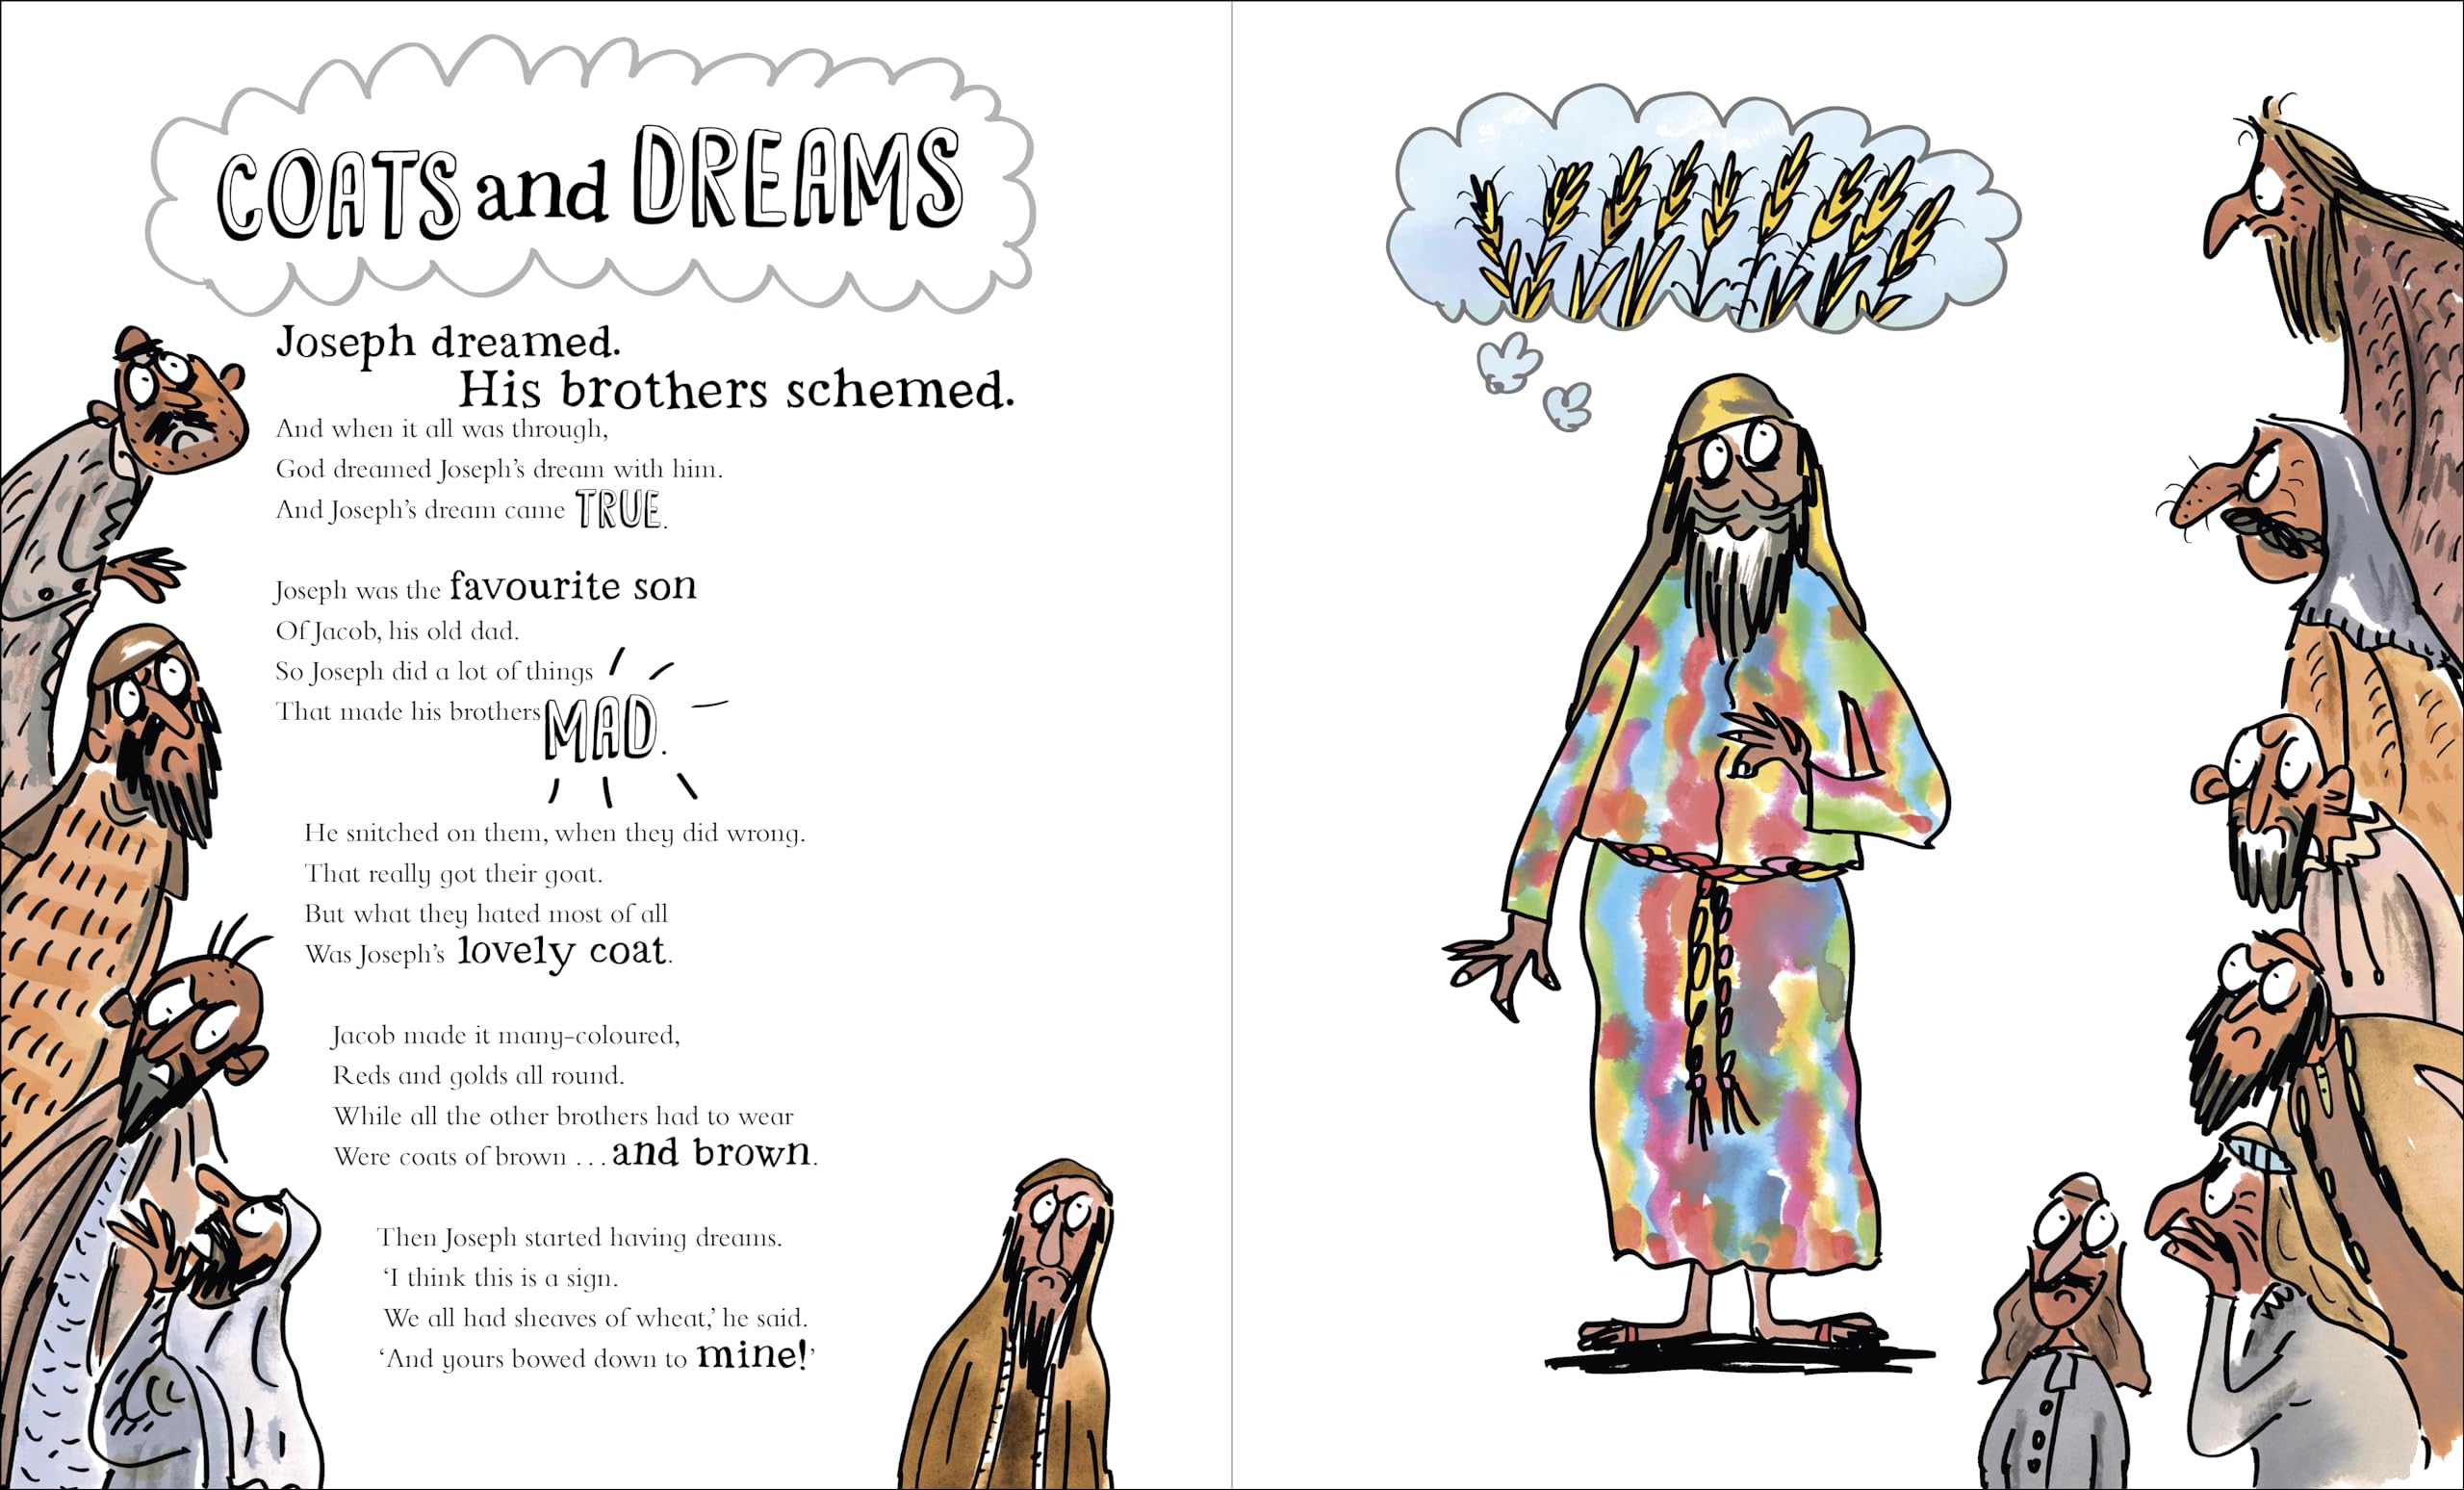 COATS and DREAMS
Joseph dreamed.
His brothers schemed.
And when it all was through,
God dreamed Joseph’s dream with him.
And Joseph’s dream came TRUE.
Joseph was the favourite son
Of Jacob, his old dad.
So Joseph did a lot of things
That made his brothers MAD.
He snitched on them, when they did wrong.
That really got their goat.
But what they hated most of all
Was Joseph’s lovely coat.
Jacob made it many-coloured,
Reds and golds all round.
While all the other brothers had to wear
Were coats of brown . . . and brown.
Then Joseph started having dreams.
‘I think this is a sign.
We all had sheaves of wheat,’ he said.
‘And yours bowed down to mine!’